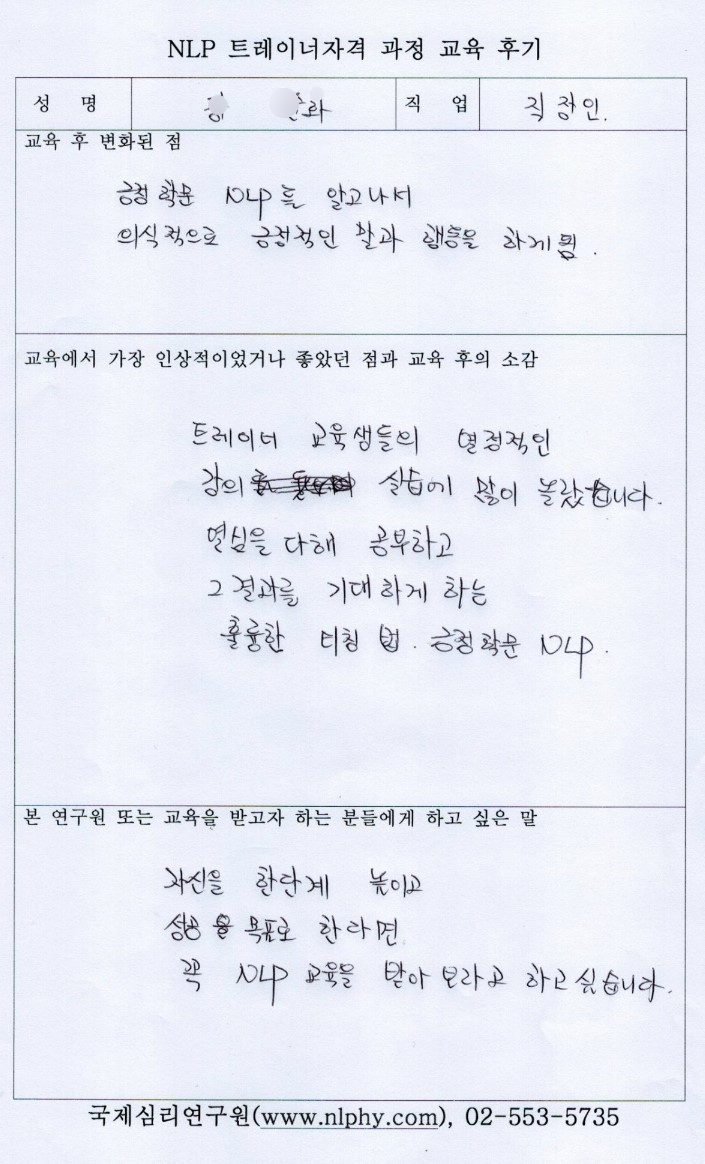 NLP 트레이너자격 과정 교육 후기
성 명 직 업 직장인.
교육 후 변화된 점
긍정학문 NLP를 알고나서
의식적으로 긍정적인 말과 행동을 하게됨.
교육에서 가장 인상적이었거나 좋았던 점과 교육 후의 소감
트레이너 교육생들의 열정적인
강의 실습에 많이 놀랐습니다.
열심을 다해 공부하고
그 결과를 기대하게 하는
훌륭한 티칭 법. 긍정학문 NLP.
본 연구원 또는 교육을 받고자 하는 분들에게 하고 싶은 말
자신을 한단계 높이고
성공을 목표로 한다면
꼭 NLP 교육을 받아 보라고 하고 싶습니다.
국제심리연구원(www.nlphy.com), 02-553-5735